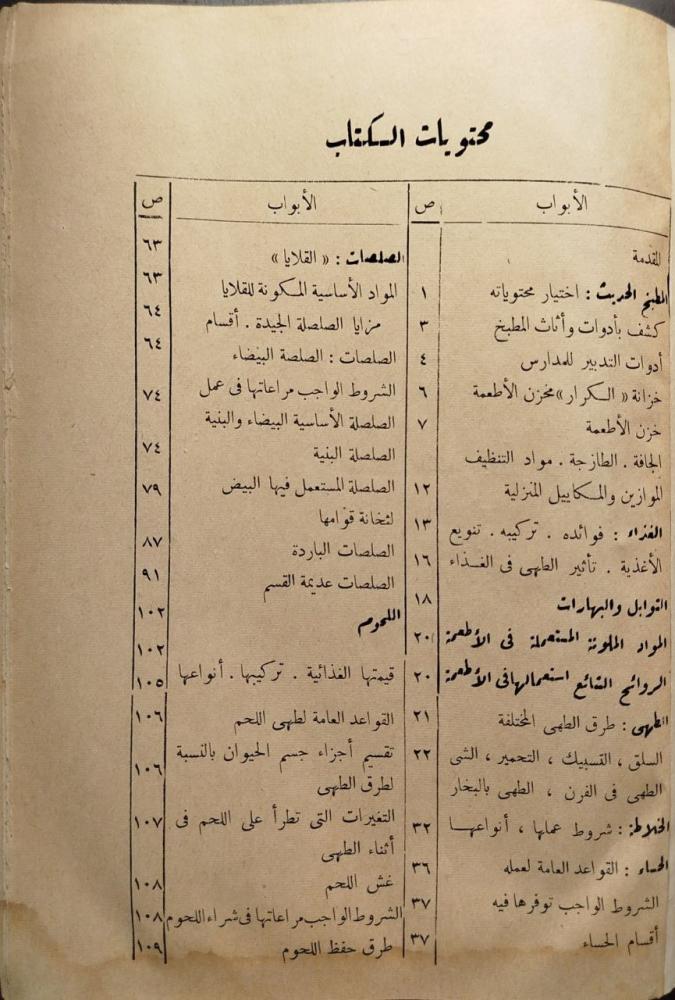 محتويات الكتاب
الأبواب ص
المقدمة
المطبخ الحديث : اختيار محتوياته ١
كشف بأدوات وأثاث المطبخ ٣
أدوات التدبير للمدارس ٤
خزانة « الكرار » مخزن الأطعمة ٦
خزن الأطعمة ٧
الجافة . الطازجة . مواد التنظيف
الموازين والمكاييل المنزلية ١٢
الغذاء : فوائده . تركيبه . تنويع ١٣
الأغذية . تأثير الطهى فى الغذاء ١٦
التوابل والبهارات ١٨
المواد الملونة المستعملة فى الأطعمة ٢٠
الروائح الشائع استعمالها فى الأطعمة ٢٠
الطهى : طرق الطهى المختلفة ٢١
السلق ، التسبيك ، التحمير ، الشى ٢٢
الطهى فى الفرن ، الطهى بالبخار
الخلاطة : شروط عملها ، أنواعها ٣٢
الحساء : القواعد العامة لعمله ٣٦
الشروط الواجب توفرها فيه ٣٧
أقسام الحساء ٣٧
الأبواب ص
الصلصات : « القلايا » ٦٣
المواد الأساسية المكونة للقلايا ٦٣
مزايا الصلصلة الجيدة . أقسام ٦٤
الصلصات : الصلصة البيضاء ٦٤
الشروط الواجب مراعاتها فى عمل ٧٤
الصلصلة الأساسية البيضاء والبنية
الصلصلة البنية ٧٤
الصلصلة المستعمل فيها البيض ٧٩
لثخانة قوامها
الصلصات الباردة ٨٧
الصلصات عديمة القسم ٩١
اللحوم ١٠٢
١٠٢
قيمتها الغذائية . تركيبها . أنواعها ١٠٥
القواعد العامة لطهى اللحم ١٠٦
تقسيم أجزاء جسم الحيوان بالنسبة ١٠٦
لطرق الطهى
التغيرات التى تطرأ على اللحم فى ١٠٧
أثناء الطهى
غش اللحم ١٠٨
الشروط الواجب مراعاتها فى شراء اللحوم ١٠٨
طرق حفظ اللحوم ١٠٩